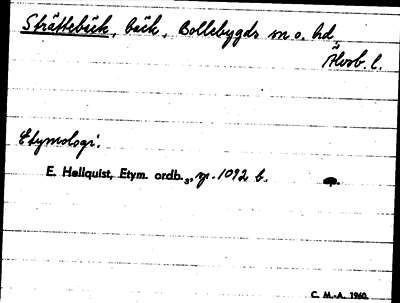 Strättebäck, bäck, Bollebygds sn o. hd,
Älvsb. l.
Etymologi:
E. Hellquist, Etym. ordb.3, sp. 1092 b.
C. M.-A. 1960.